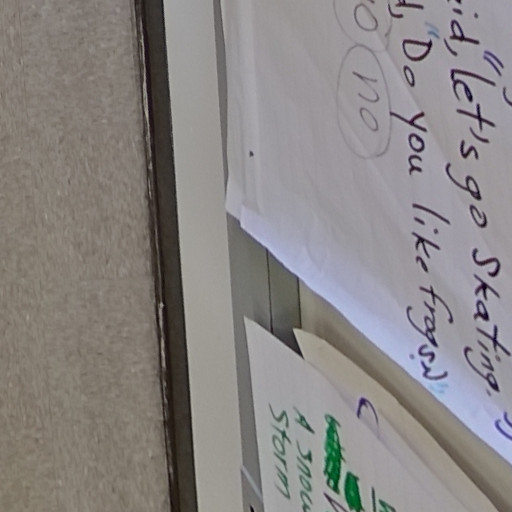 id, "Let's go skating."
"Do you like frogs?"
no
A snow
Storm